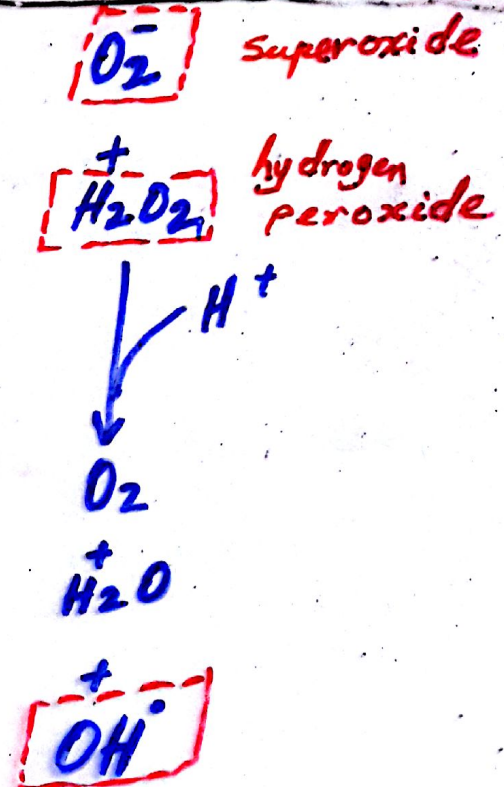 O₂⁻ superoxide
+
H₂O₂ hydrogen
peroxide
H⁺
O₂
+
H₂O
+
OH•